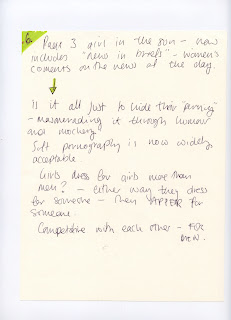 6. Page 3 girl in the sun - now
includes "news in briefs" - women's
coments on the news of the day.
Is it all just to hide their
- masquerading it through humour
and mockery
Soft pornography is now widely
acceptable
Girls dress for girls more than
men? - either way they dress
for someone - they SUFFER for
someone.
Competative with each other - FOR
MEN.